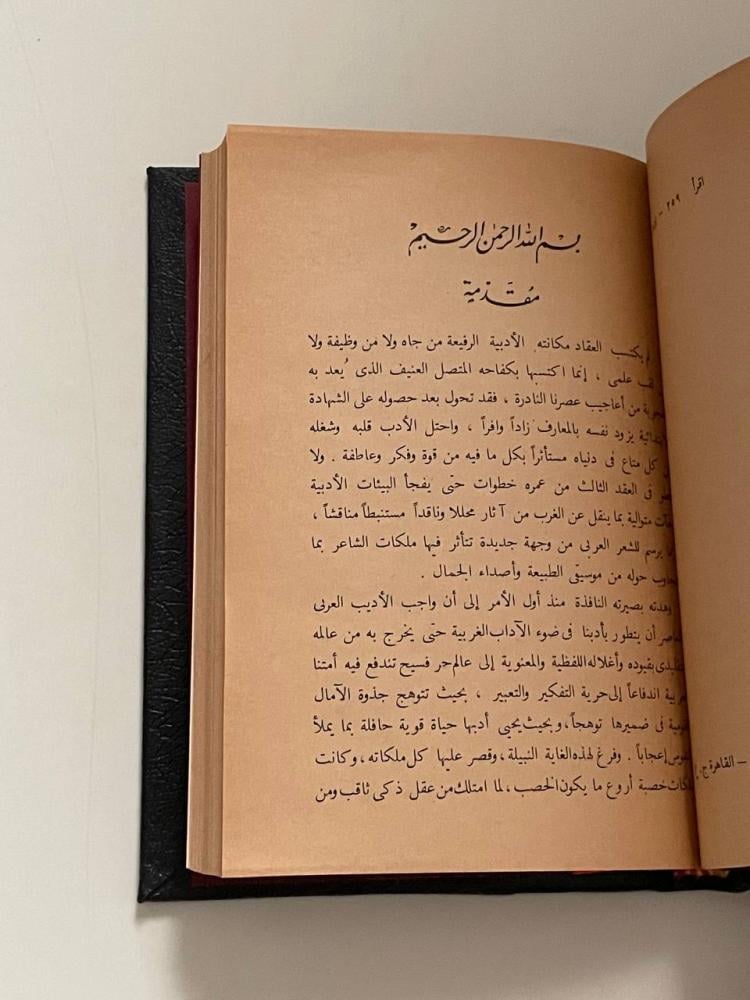 بسم الله الرحمن الرحيم
مقدمة
لم يكتسب العقاد مكانته الأدبية الرفيعة من جاه ولا من وظيفة ولا
لقب علمى ، إنما اكتسبها بكفاحه المتصل العنيف الذى يُعد به
من أعاجيب عصرنا النادرة ، فقد تحول بعد حصوله على الشهادة
يزود نفسه بالمعارف زاداً وافراً ، واحتل الأدب قلبه وشغله
كل متاع فى دنياه مستأثراً بكل ما فيه من قوة وفكر وعاطفة . ولا
فى العقد الثالث من عمره خطوات حتى يفجأ البيئات الأدبية
متوالية بما ينقل عن الغرب من آثار محللا وناقداً مستنبطاً مناقشاً ،
يرسم للشعر العربى من وجهة جديدة تتأثر فيها ملكات الشاعر بما
حوله من موسيقى الطبيعة وأصداء الجمال .
وهدته بصيرته النافذة منذ أول الأمر إلى أن واجب الأديب العربى
أن يتطور بأدبنا فى ضوء الآداب الغربية حتى يخرج به من عالمه
بقيوده وأغلاله اللفظية والمعنوية إلى عالم حر فسيح تندفع فيه أمتنا
اندفاعاً إلى حرية التفكير والتعبير ، بحيث تتوهج جذوة الآمال
فى ضميرها توهجاً ، وبحيث يحيى أدبها حياة قوية حافلة بما يملأ
إعجاباً . وفرغ لهذه الغاية النبيلة ، وقصر عليها كل ملكاته ، وكانت
خصبة أروع ما يكون الخصب ، لما امتلك من عقل ذكى ثاقب ومن
اقرأ
٢٥٩ -
- القاهرة ج .